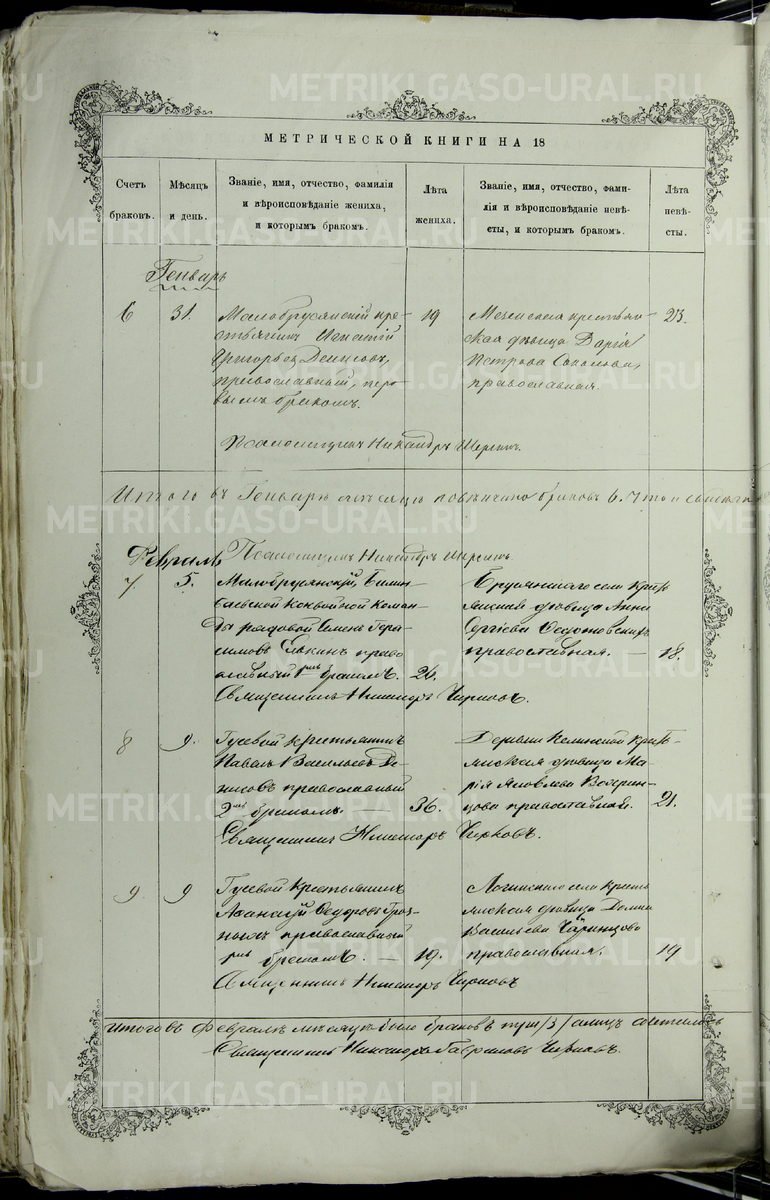 METRIKI.GASO-URAL.RU
МЕТРИЧЕСКОЙ КНИГИ НА 18
Счетъ браковъ.
Мѣсяцъ и день.
Званіе, имя, отчество, фамилія и вѣроисповѣданіе жениха, и которымъ бракомъ.
Лѣта жениха.
Званіе, имя, отчество, фами-
лія и вѣроисповѣданіе невѣ-
сты, и которымъ бракомъ.
Лѣта невѣ-
сты.
Генварь
6 31. Малобрусянскій кре-
стьянинъ Игнатій
Григорьевъ Денисовъ,
православный, пер-
вымъ бракомъ.
19
кая дѣвица Дарія
Петрова Соколова,
православная.
23.
Псаломщикъ Никандръ
Итого въ Генварѣ мѣсяцѣ повѣнчано браковъ 6. Что и
Псаломщикъ Никандръ
Февраль
7 5. Малобрусянскій, Билим-
баевской Конвойной Коман-
ды рядовой Семенъ Гера-
симовъ право-
славный 1мъ бракомъ. 26.
Брусянскаго села Кресть-
янская дѣвица Анна
Сергіева Федотовскихъ
православная. — 18.
Священникъ Никаноръ Чирковъ.
8 9. Гусевой крестьянинъ
Павелъ Васильевъ Де-
нисовъ православный
2мъ бракомъ. — 36.
Деревни Кресть-
янская дѣвица Ма-
рія Яковлева
православной. 21.
Священникъ Никаноръ Чирковъ.
9 9 Гусевой Крестьянинъ
Афанасій Федоровъ
православный
1мъ бракомъ. — 19.
Логиновскаго села Кресть-
янская дѣвица Домна
Васильева
православная. 19
Священникъ Никаноръ Чирковъ
Итого въ Февралѣ мѣсяцѣ было браковъ три /3/
Священникъ Никаноръ Гавриловъ Чирковъ.